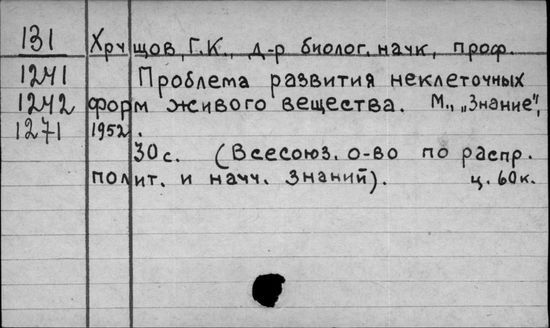 131 Хрущов, Г.К., д-р биолог. наук, проф.
1241 Проблема развития неклеточных
1242 форм живого вещества. М., „Знание",
1271 1952.
30с. (Всесоюз. о-во по распр.
полит. и науч. знаний). ц. 60к.